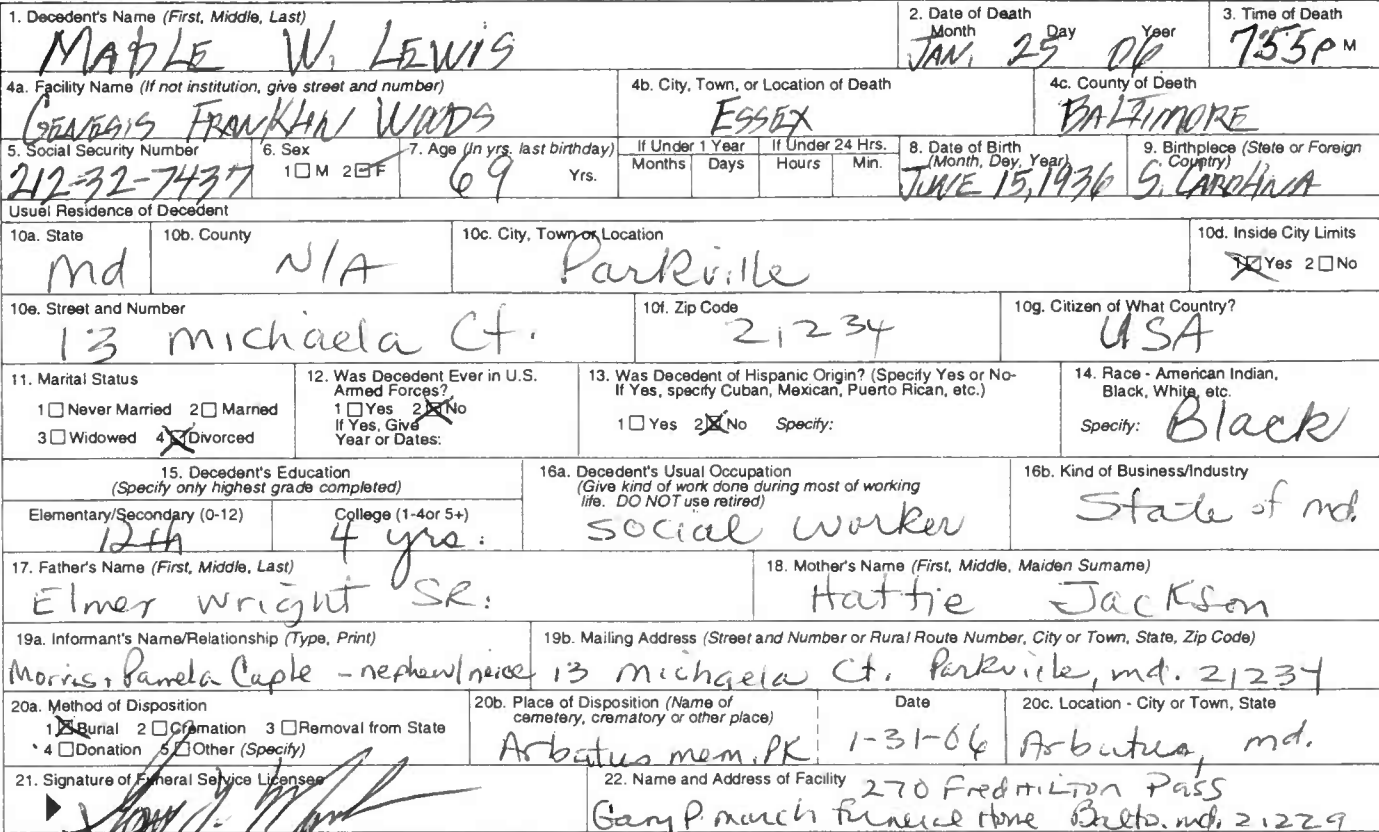 1. Decedent's Name (First, Middle, Last)
MABLE W. LEWIS
2. Date of Death
Month Day Year
JAN. 25 06
3. Time of Death
755P M
4a. Facility Name (If not institution, give street and number)
GENESIS FRANKLIN WOODS
4b. City, Town, or Location of Death
ESSEX
4c. County of Death
BALTIMORE
5. Social Security Number
212-32-7437
6. Sex
1 ☐ M 2 ☑ F
7. Age (In yrs. last birthday)
69 Yrs.
If Under 1 Year
Months Days
If Under 24 Hrs.
Hours Min.
8. Date of Birth
(Month, Day, Year)
JUNE 15, 1936
9. Birthplace (State or Foreign
Country)
S. CAROLINA
Usual Residence of Decedent
10a. State
Md
10b. County
N/A
10c. City, Town or Location
Parkville
10d. Inside City Limits
1 ☒ Yes 2 ☐ No
10e. Street and Number
13 Michaela Ct.
10f. Zip Code
21234
10g. Citizen of What Country?
USA
11. Marital Status
1 ☐ Never Married 2 ☐ Married
3 ☐ Widowed 4 ☒ Divorced
12. Was Decedent Ever in U.S.
Armed Forces?
1 ☐ Yes 2 ☒ No
If Yes, Give
Year or Dates:
13. Was Decedent of Hispanic Origin? (Specify Yes or No-
If Yes, specify Cuban, Mexican, Puerto Rican, etc.)
1 ☐ Yes 2 ☒ No Specify:
14. Race - American Indian,
Black, White, etc.
Specify: Black
15. Decedent's Education
(Specify only highest grade completed)
Elementary/Secondary (0-12)
12th
College (1-4or 5+)
4 yrs.
16a. Decedent's Usual Occupation
(Give kind of work done during most of working
life. DO NOT use retired)
Social Worker
16b. Kind of Business/Industry
State of md.
17. Father's Name (First, Middle, Last)
Elmer Wright SR.
18. Mother's Name (First, Middle, Maiden Surname)
Hattie Jackson
19a. Informant's Name/Relationship (Type, Print)
Morris & Pamela Caple - nephew/neice
19b. Mailing Address (Street and Number or Rural Route Number, City or Town, State, Zip Code)
13 Michaela Ct. Parkville, md. 21234
20a. Method of Disposition
1 ☒ Burial 2 ☐ Cremation 3 ☐ Removal from State
4 ☐ Donation 5 ☐ Other (Specify)
20b. Place of Disposition (Name of
cemetery, crematory or other place)
Arbutus mem. PK
Date
1-31-06
20c. Location - City or Town, State
Arbutus, md.
21. Signature of Funeral Service Licensee
22. Name and Address of Facility 270 FredHiLTon Pass
Gary P. march Funeral Home Balto. md. 21229